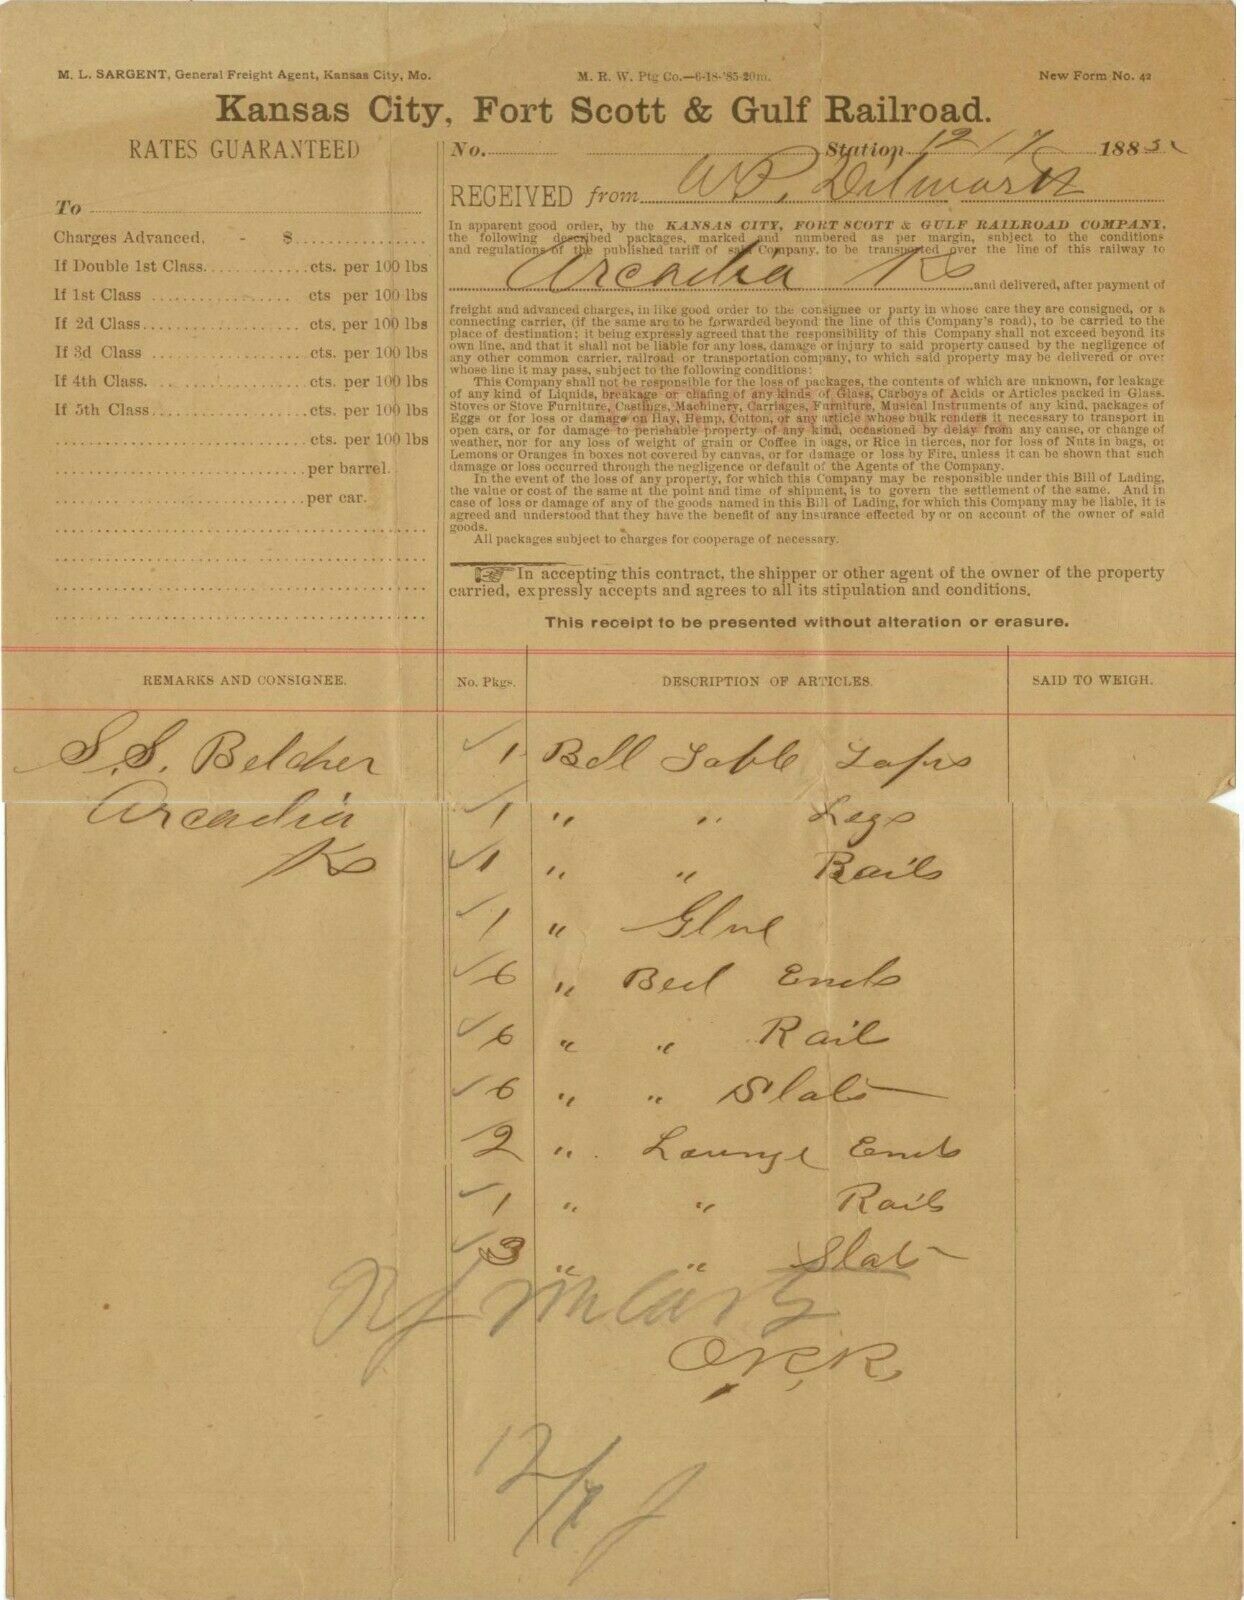 M. L. SARGENT, General Freight Agent, Kansas City, Mo.
M. R. W. Ptg Co.—6-18-'85-20m.
New Form No. 42
Kansas City, Fort Scott & Gulf Railroad.
RATES GUARANTEED
To
Charges Advanced, - $
If Double 1st Class cts. per 100 lbs
If 1st Class cts per 100 lbs
If 2d Class cts. per 100 lbs
If 3d Class cts. per 100 lbs
If 4th Class. cts. per 100 lbs
If 5th Class cts. per 100 lbs
cts. per 100 lbs
per barrel.
per car.
No. Station 12/7 1885
RECEIVED from W.P. Dilworth
In apparent good order, by the KANSAS CITY, FORT SCOTT & GULF RAILROAD COMPANY,
the following described packages, marked and numbered as per margin, subject to the conditions
and regulations of the published tariff of said Company, to be transported over the line of this railway to
Arcadia Ks and delivered, after payment of
freight and advanced charges, in like good order to the consignee or party in whose care they are consigned, or a
connecting carrier, (if the same are to be forwarded beyond the line of this Company's road), to be carried to the
place of destination; it being expressly agreed that the responsibility of this Company shall not exceed beyond its
own line, and that it shall not be liable for any loss, damage or injury to said property caused by the negligence of
any other common carrier, railroad or transportation company, to which said property may be delivered or over
whose line it may pass, subject to the following conditions:
This Company shall not be responsible for the loss of packages, the contents of which are unknown, for leakage
of any kind of Liquids, breakage or chafing of any kinds of Glass, Carboys of Acids or Articles packed in Glass.
Stoves or Stove Furniture, Castings, Machinery, Carriages, Furniture, Musical Instruments of any kind, packages of
Eggs or for loss or damage on Hay, Hemp, Cotton, or any article whose bulk renders it necessary to transport in
open cars, or for damage to perishable property of any kind, occasioned by delay from any cause, or change of
weather, nor for any loss of weight of grain or Coffee in bags, or Rice in tierces, nor for loss of Nuts in bags, or
Lemons or Oranges in boxes not covered by canvas, or for damage or loss by Fire, unless it can be shown that such
damage or loss occurred through the negligence or default of the Agents of the Company.
In the event of the loss of any property, for which this Company may be responsible under this Bill of Lading,
the value or cost of the same at the point and time of shipment, is to govern the settlement of the same. And in
case of loss or damage of any of the goods named in this Bill of Lading, for which this Company may be liable, it is
agreed and understood that they have the benefit of any insurance effected by or on account of the owner of said
goods.
All packages subject to charges for cooperage of necessary.
☞ In accepting this contract, the shipper or other agent of the owner of the property
carried, expressly accepts and agrees to all its stipulation and conditions.
This receipt to be presented without alteration or erasure.
REMARKS AND CONSIGNEE. No. Pkgs. DESCRIPTION OF ARTICLES. SAID TO WEIGH.
S. S. Belcher ✓ 1 Bdl Table Tops
Arcadia ✓ 1 " " Legs
Ks ✓ 1 " " Rails
✓ 1 " Glue
✓ 6 " Bed Ends
✓ 6 " " Rail
✓ 6 " " Slats
2 " Lounge Ends
✓ 1 " " Rails
✓ 3 " " Slats
O.R.R.
12/7